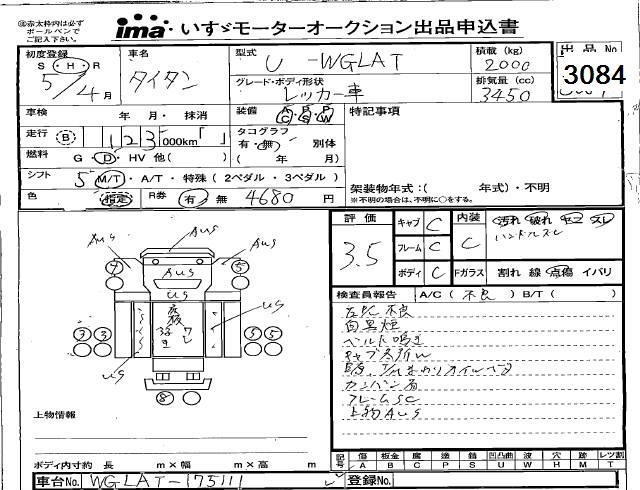 ◎赤太枠内は必ず
ボールペンで
ご記入下さい。
ima いすゞモーターオークション出品申込書
初度登録
S・H・R
5/4月
車名
タイタン
型式
U-WGLAT
グレード・ボディ形状
レッカー車
積載 (kg)
2000
排気量 (cc)
3450
出品No
3084
車検 年・月・抹消
走行 B 123,000km「 」
燃料 G・D・HV 他( )
シフト 5 M/T・A/T・特殊(2ペダル・3ペダル)
色 指定 R券 有 無 4680 円
装備 AC PS PW
タコグラフ
有・無 別体
( 年 月)
特記事項
架装物年式:( 年式)・不明
※不明の場合は、不明に○をする。
評価
3.5
キャブ C
フレーム C
ボディ C
内装
C
汚れ 破れ コゲ スレ
ハンドルスレ
Fガラス 割れ 線 点傷 イバリ
検査員報告 A/C (不良) B/T ( )
白黒煙
ベルト鳴き
フレームSC
上物AUS
AUS
AUS
AUS
4
AUS
5
US
US
3 3
床板
5 5
US
8
上物情報
ボディ内寸約 長 m×幅 m×高 m
記号 傷A 板金B 腐C 塗P 錆S 凹凸曲U 波W 穴H 跡M レツ割T
車台No. WGLAT-175111
登録No.